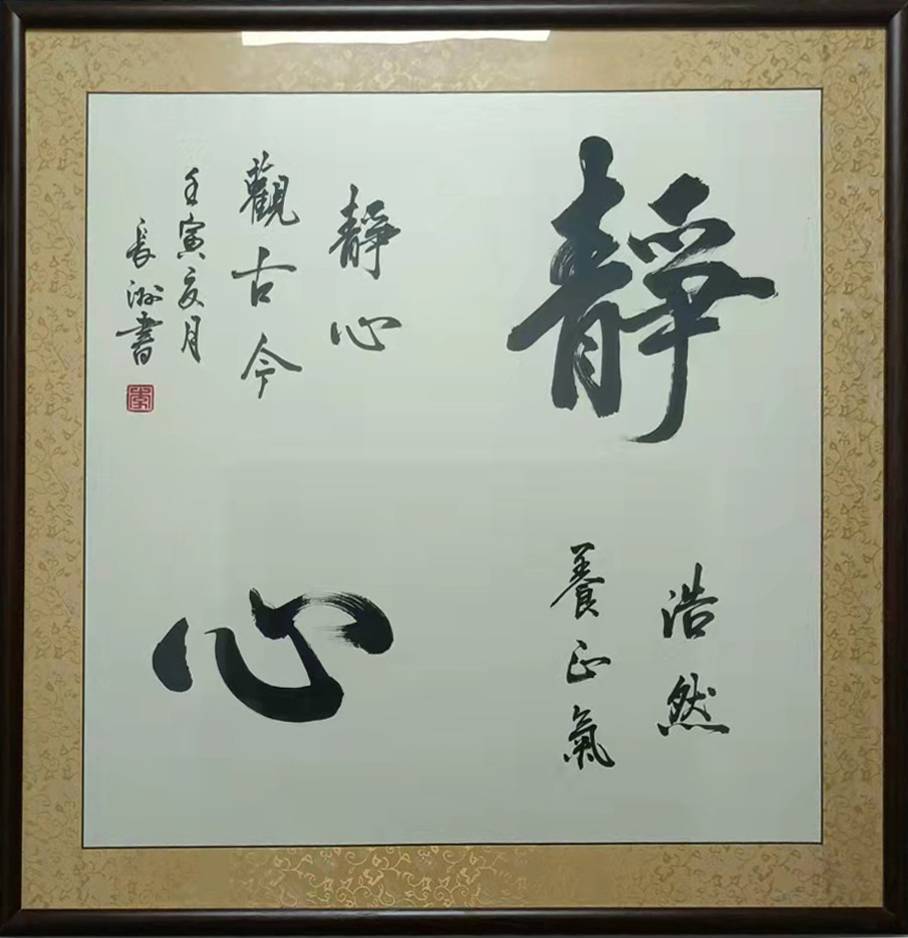 靜
浩然
養正氣
心
靜心
觀古今
壬寅亥月
長洲書